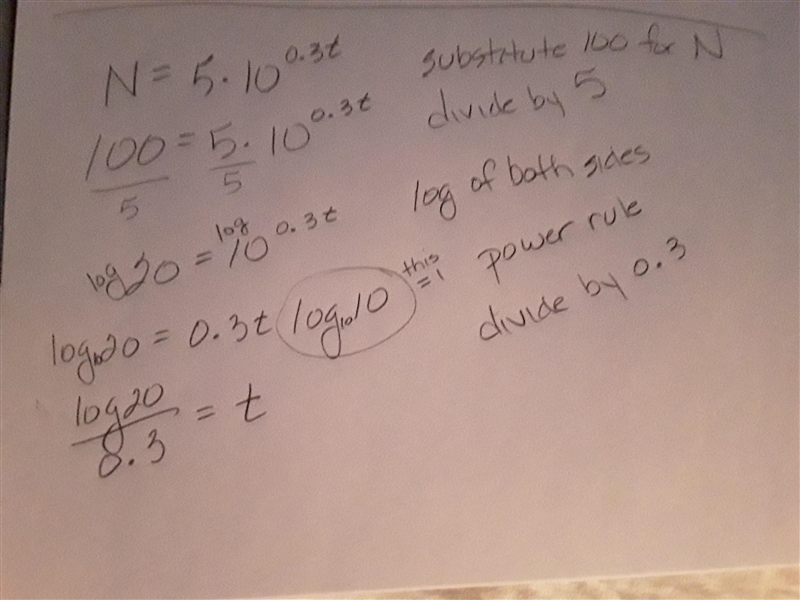 N = 5 · 10^0.3t substitute 100 for N
100/5 = 5/5 · 10^0.3t divide by 5
log 20 = log 10^0.3t log of both sides
log₁₀20 = 0.3t log₁₀10 this = 1 power rule
divide by 0.3
log 20/0.3 = t